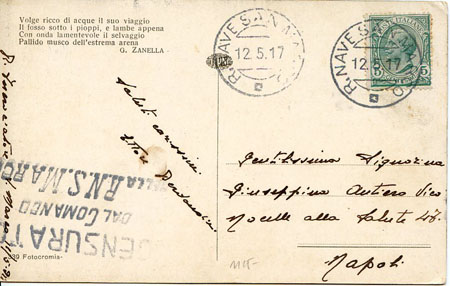 Volge ricco di acque il suo viaggio
Il fosso sotto i pioppi, e lambe appena
Con onda lamentevole il selvaggio
Pallido musco dell'estrema arena
G. ZANELLA.
R. NAVE SAN MARCO
12.5.17
R. NAVE SAN MARCO
12.5.17
5 5
Saluti carissimi
Ettore
Gentilissima Signorina
Giuseppina Antero Vico
Nocelle alla Salute 48
Napoli
CENSURAT
DAL COMANDO
DELLA R.N. S. MARCO
39 Fotocromia